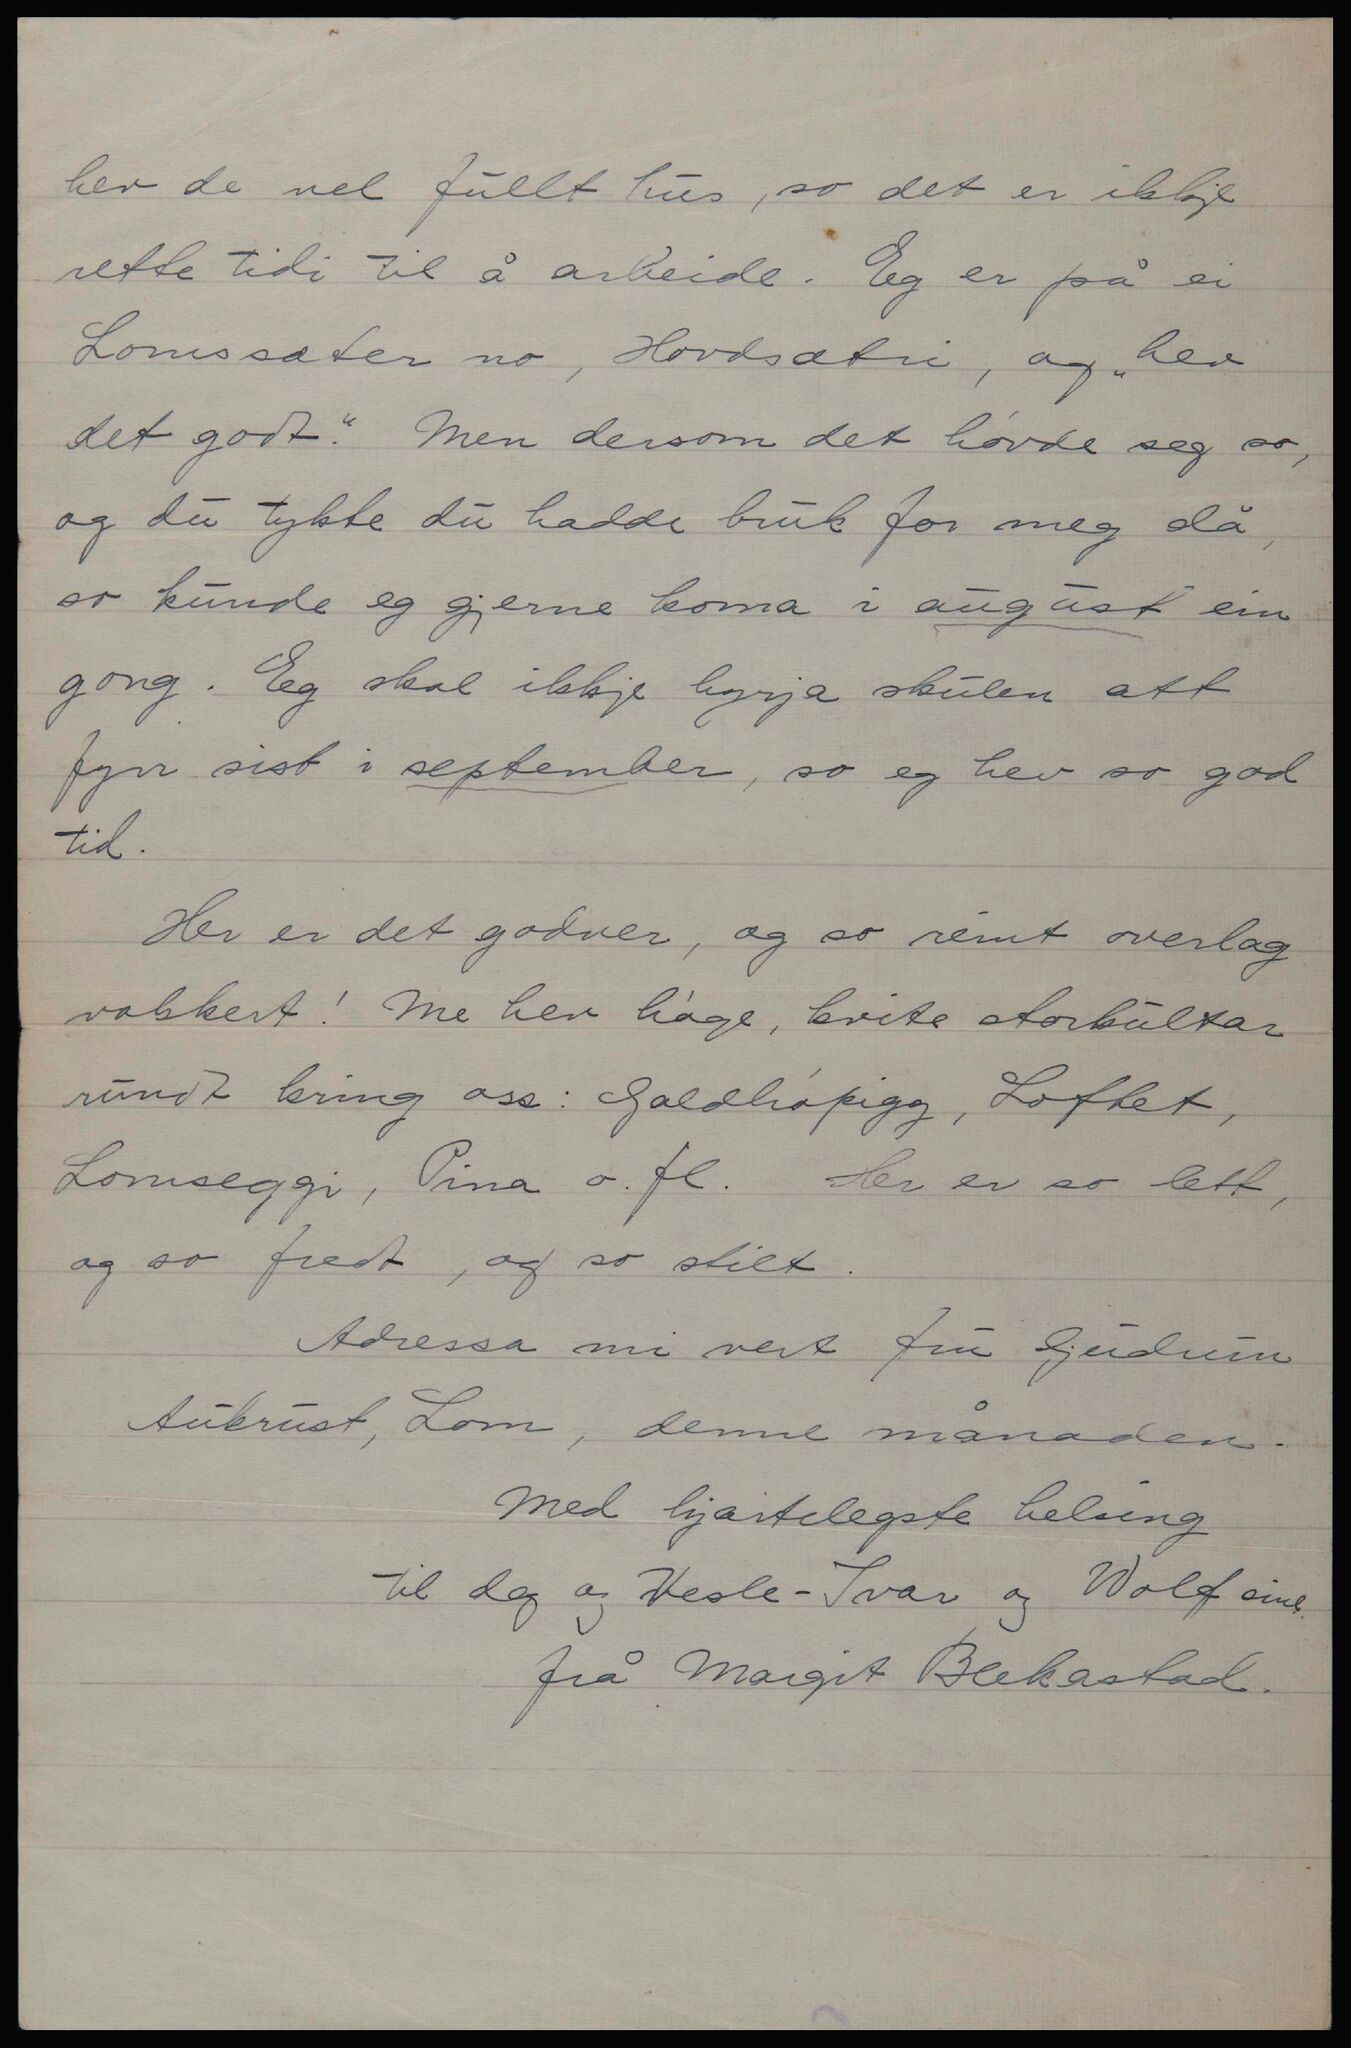 hev de vel fullt hus, so det er ikkje
rette tidi til å arbeide. Eg er på ei
Lomssæter no, Hovdsætri, og „hev
det godt“. Men dersom det høvde seg so,
og du tykte du hadde bruk for meg då,
so kunde eg gjerne koma i august ein
gong. Eg skal ikkje byrja skulen att
fyrr sist i september, so eg hev so god
tid.
Her er det godver, og so reint overlag
vakkert! Me hev høge, kvite storkultar
rundt kring oss: Galdhøpigg, Loftet,
Lomseggi, Pina o. fl. Her er so lett,
og so fredt, og so stilt.
Adressa mi vert fru Gudrun
Aukrust, Lom, denne månaden.
Med hjartelegste helsing
til deg og Vesle-Ivar og Wolf
frå Margit Blekastad.